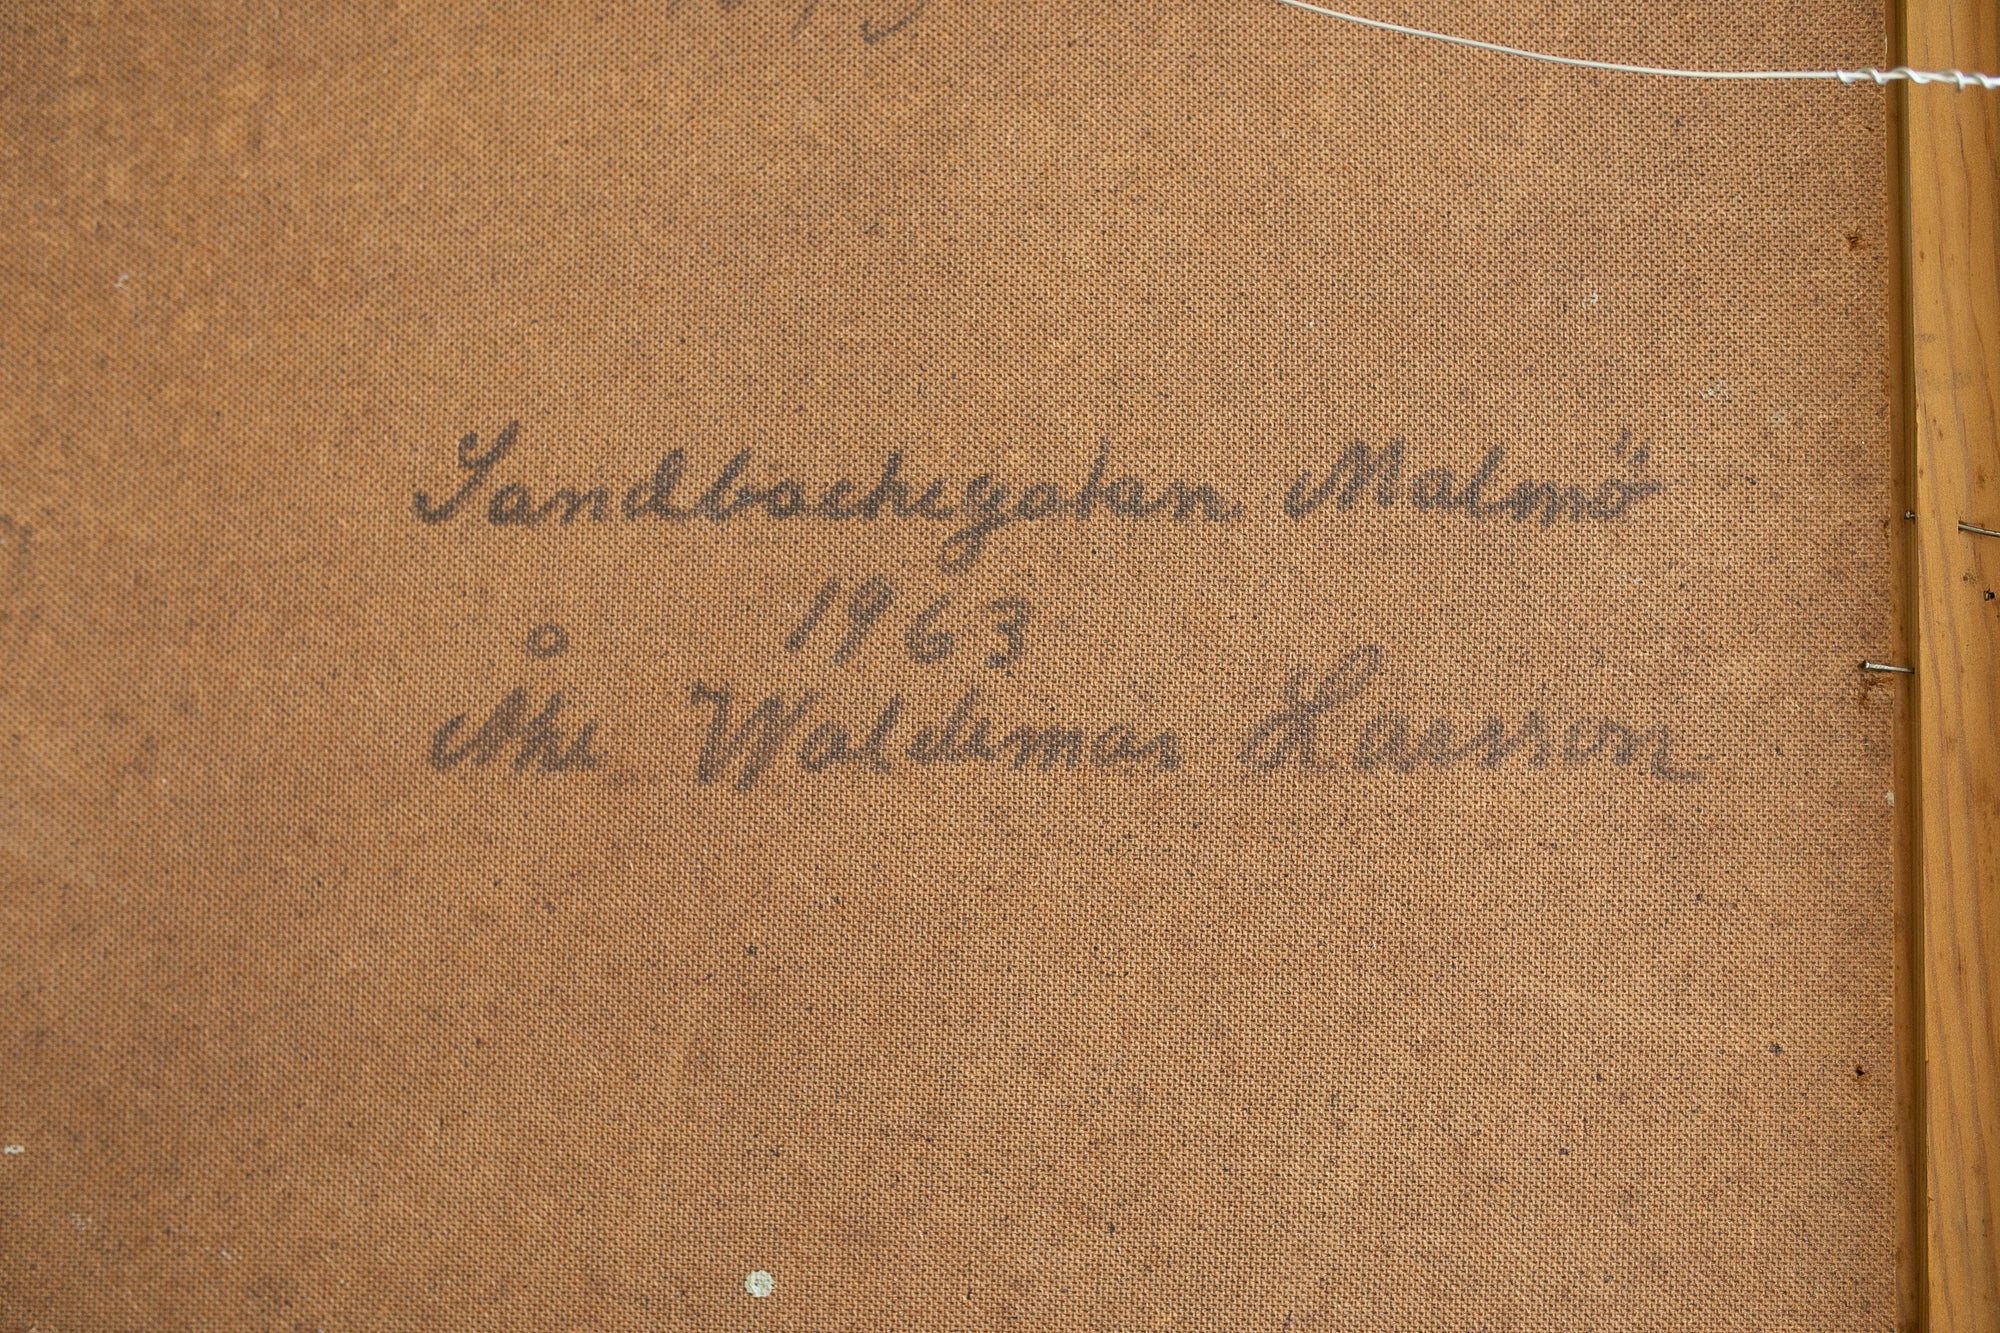 Sandbackegatan Malmö
1963
Åke Waldemar Larsson